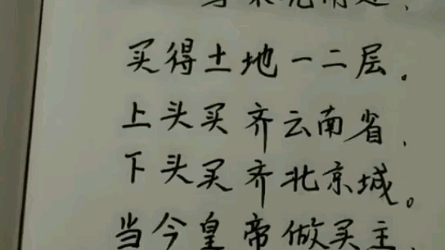 买得土地一二层。
上头买齐云南省,
下头买齐北京城。
当今皇帝做买主,